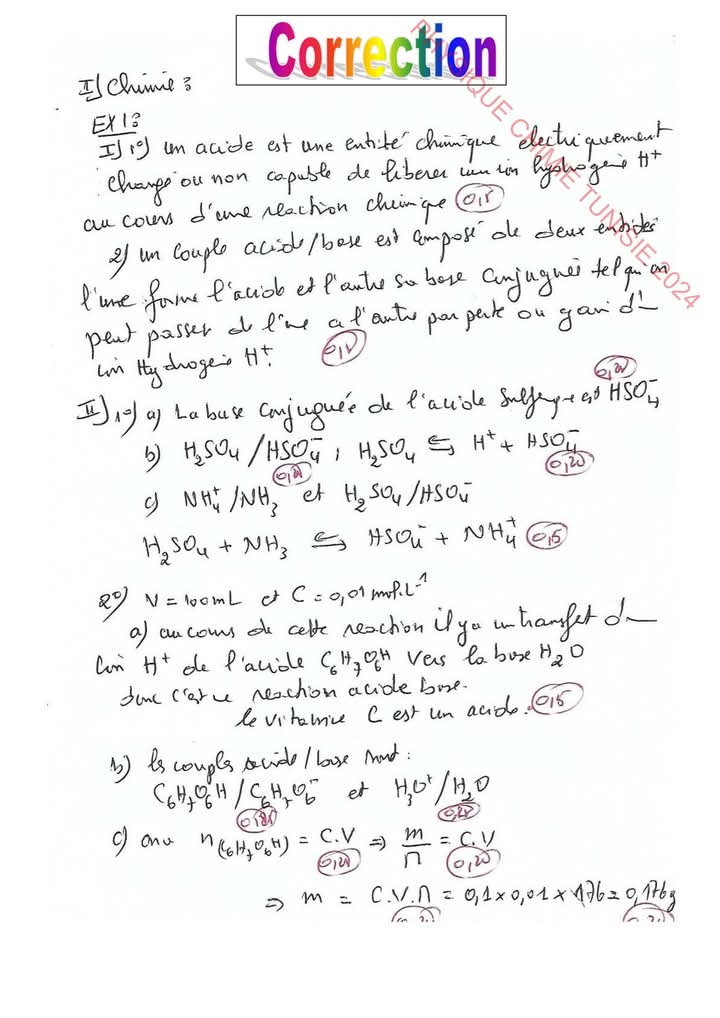 Correction
PHYSIQUE CHIMIE TUNISIE 2024
I) Chimie :
EX1 :
I) 1°) un acide est une entité chimique electriquement
chargé ou non capable de liberer un ion hydrogène H⁺
au cours d'une reaction chimique 0,5
2) un couple acide/base est composé de deux entités
l'une forme l'acide et l'autre sa base conjuguée tel qu'on
peut passer de l'une a l'autre par perte ou gain d'
ion Hydrogène H⁺.
II) 1°) a) La base conjuguée de l'acide est HSO₄⁻
b) H₂SO₄/HSO₄⁻ ; H₂SO₄ ⇆ H⁺ + HSO₄⁻
c) NH₄⁺/NH₃ et H₂SO₄/HSO₄⁻
H₂SO₄ + NH₃ ⇆ HSO₄⁻ + NH₄⁺ 0,5
2°) V = 100mL et C = 0,01 mol.L⁻¹
a) au cours de cette reaction il y a un transfet d'
ion H⁺ de l'acide C₆H₇O₆H vers la base H₂O
donc c'est reaction acide base.
le vitamine C est un acide. 0,5
b) les couples acide/base sont :
C₆H₇O₆H/C₆H₇O₆⁻ et H₃O⁺/H₂O
c) on a n(C₆H₇O₆H) = C.V ⇒ m/M = C.V
⇒ m = C.V.M = 0,1 x 0,01 x 176 = 0,176g